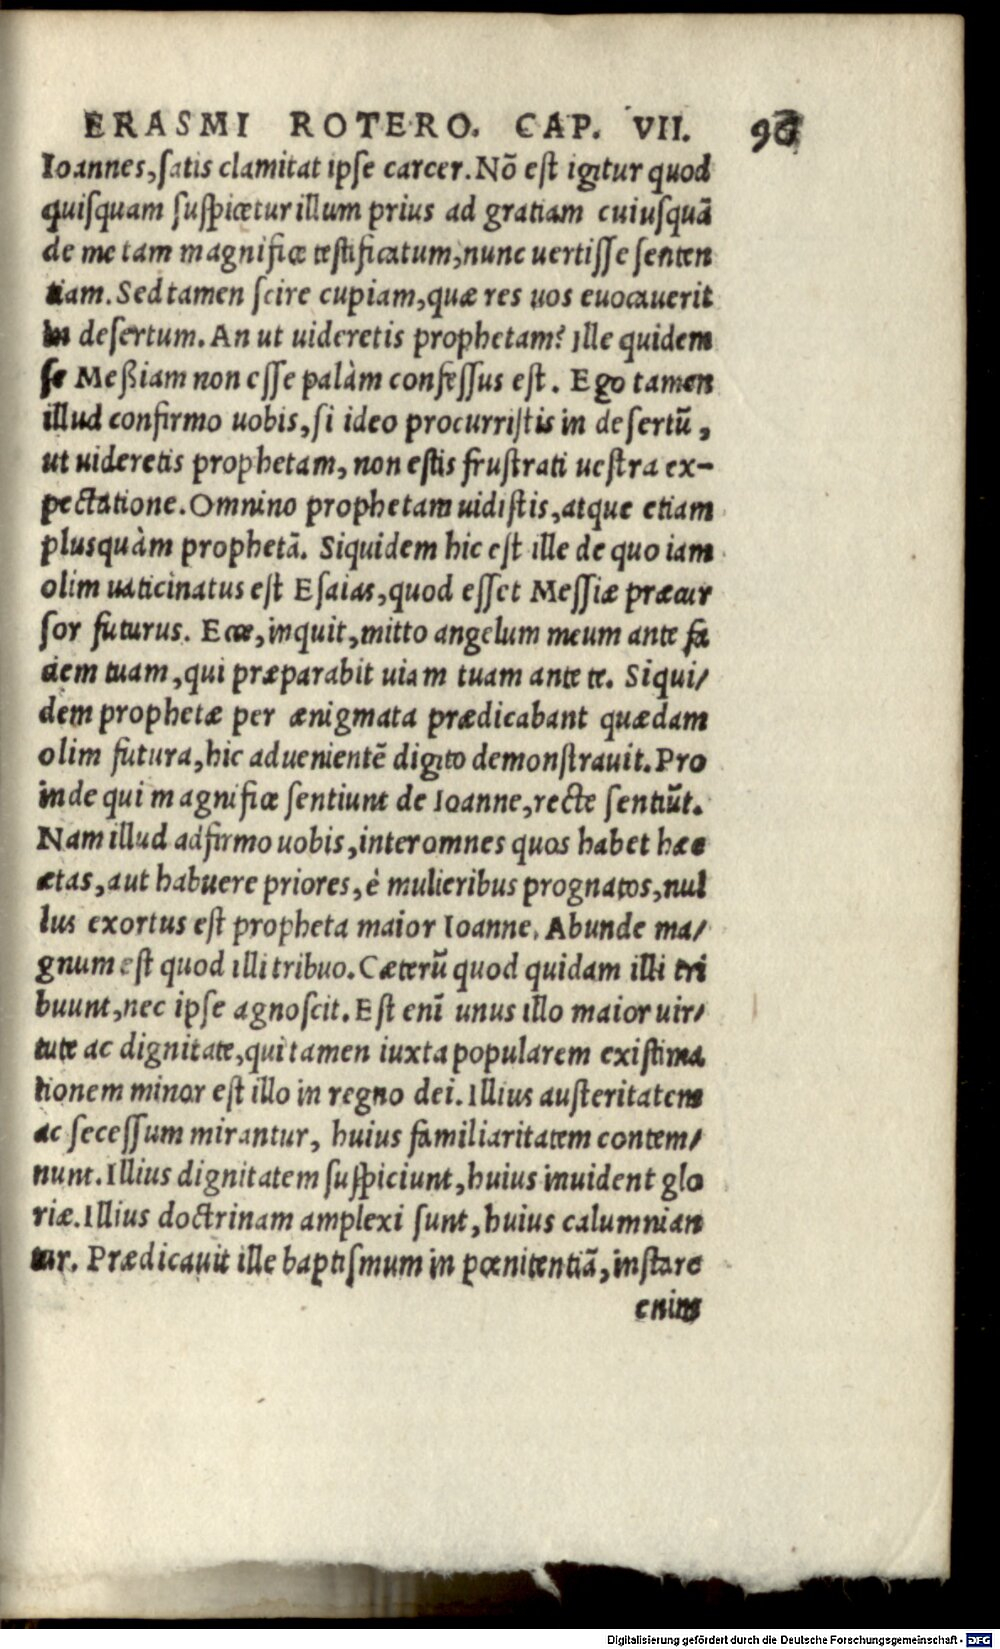 ERASMI ROTERO. CAP. VII. 96
Ioannes, satis clamitat ipse carcer. Nõ est igitur quod
quisquam suspicetur illum prius ad gratiam cuiusquã
de me tam magnifice testificatum, nunc uertisse senten
tiam. Sed tamen scire cupiam, quæ res uos euocauerit
in desertum. An ut uideretis prophetam? Ille quidem
se Meßiam non esse palàm confessus est. Ego tamen
illud confirmo uobis, si ideo procurristis in desertũ,
ut uideretis prophetam, non estis frustrati uestra ex-
pectatione. Omnino prophetam uidistis, atque etiam
plusquàm prophetã. Siquidem hic est ille de quo iam
olim uaticinatus est Esaias, quod esset Messiæ præcur
sor futurus. Ecce, inquit, mitto angelum meum ante fa
ciem tuam, qui præparabit uiam tuam ante te. Siqui/
dem prophetæ per ænigmata prædicabant quædam
olim futura, hic aduenientẽ digito demonstrauit. Pro
inde qui magnifice sentiunt de Ioanne, recte sentiũt.
Nam illud adfirmo uobis, inter omnes quos habet hæc
ætas, aut habuere priores, è mulieribus prognatos, nul
lus exortus est propheta maior Ioanne. Abunde ma/
gnum est quod illi tribuo. Cæterũ quod quidam illi tri
buunt, nec ipse agnoscit. Est enĩ unus illo maior uir/
tute ac dignitate, qui tamen iuxta popularem existima
tionem minor est illo in regno dei. Illius austeritatem
ac secessum mirantur, huius familiaritatem contem/
nunt. Illius dignitatem suspiciunt, huius inuident glo
riæ. Illius doctrinam amplexi sunt, huius calumnian
tur. Prædicauit ille baptismum in pœnitentiã, instare
enim
Digitalisierung gefördert durch die Deutsche Forschungsgemeinschaft - DFG